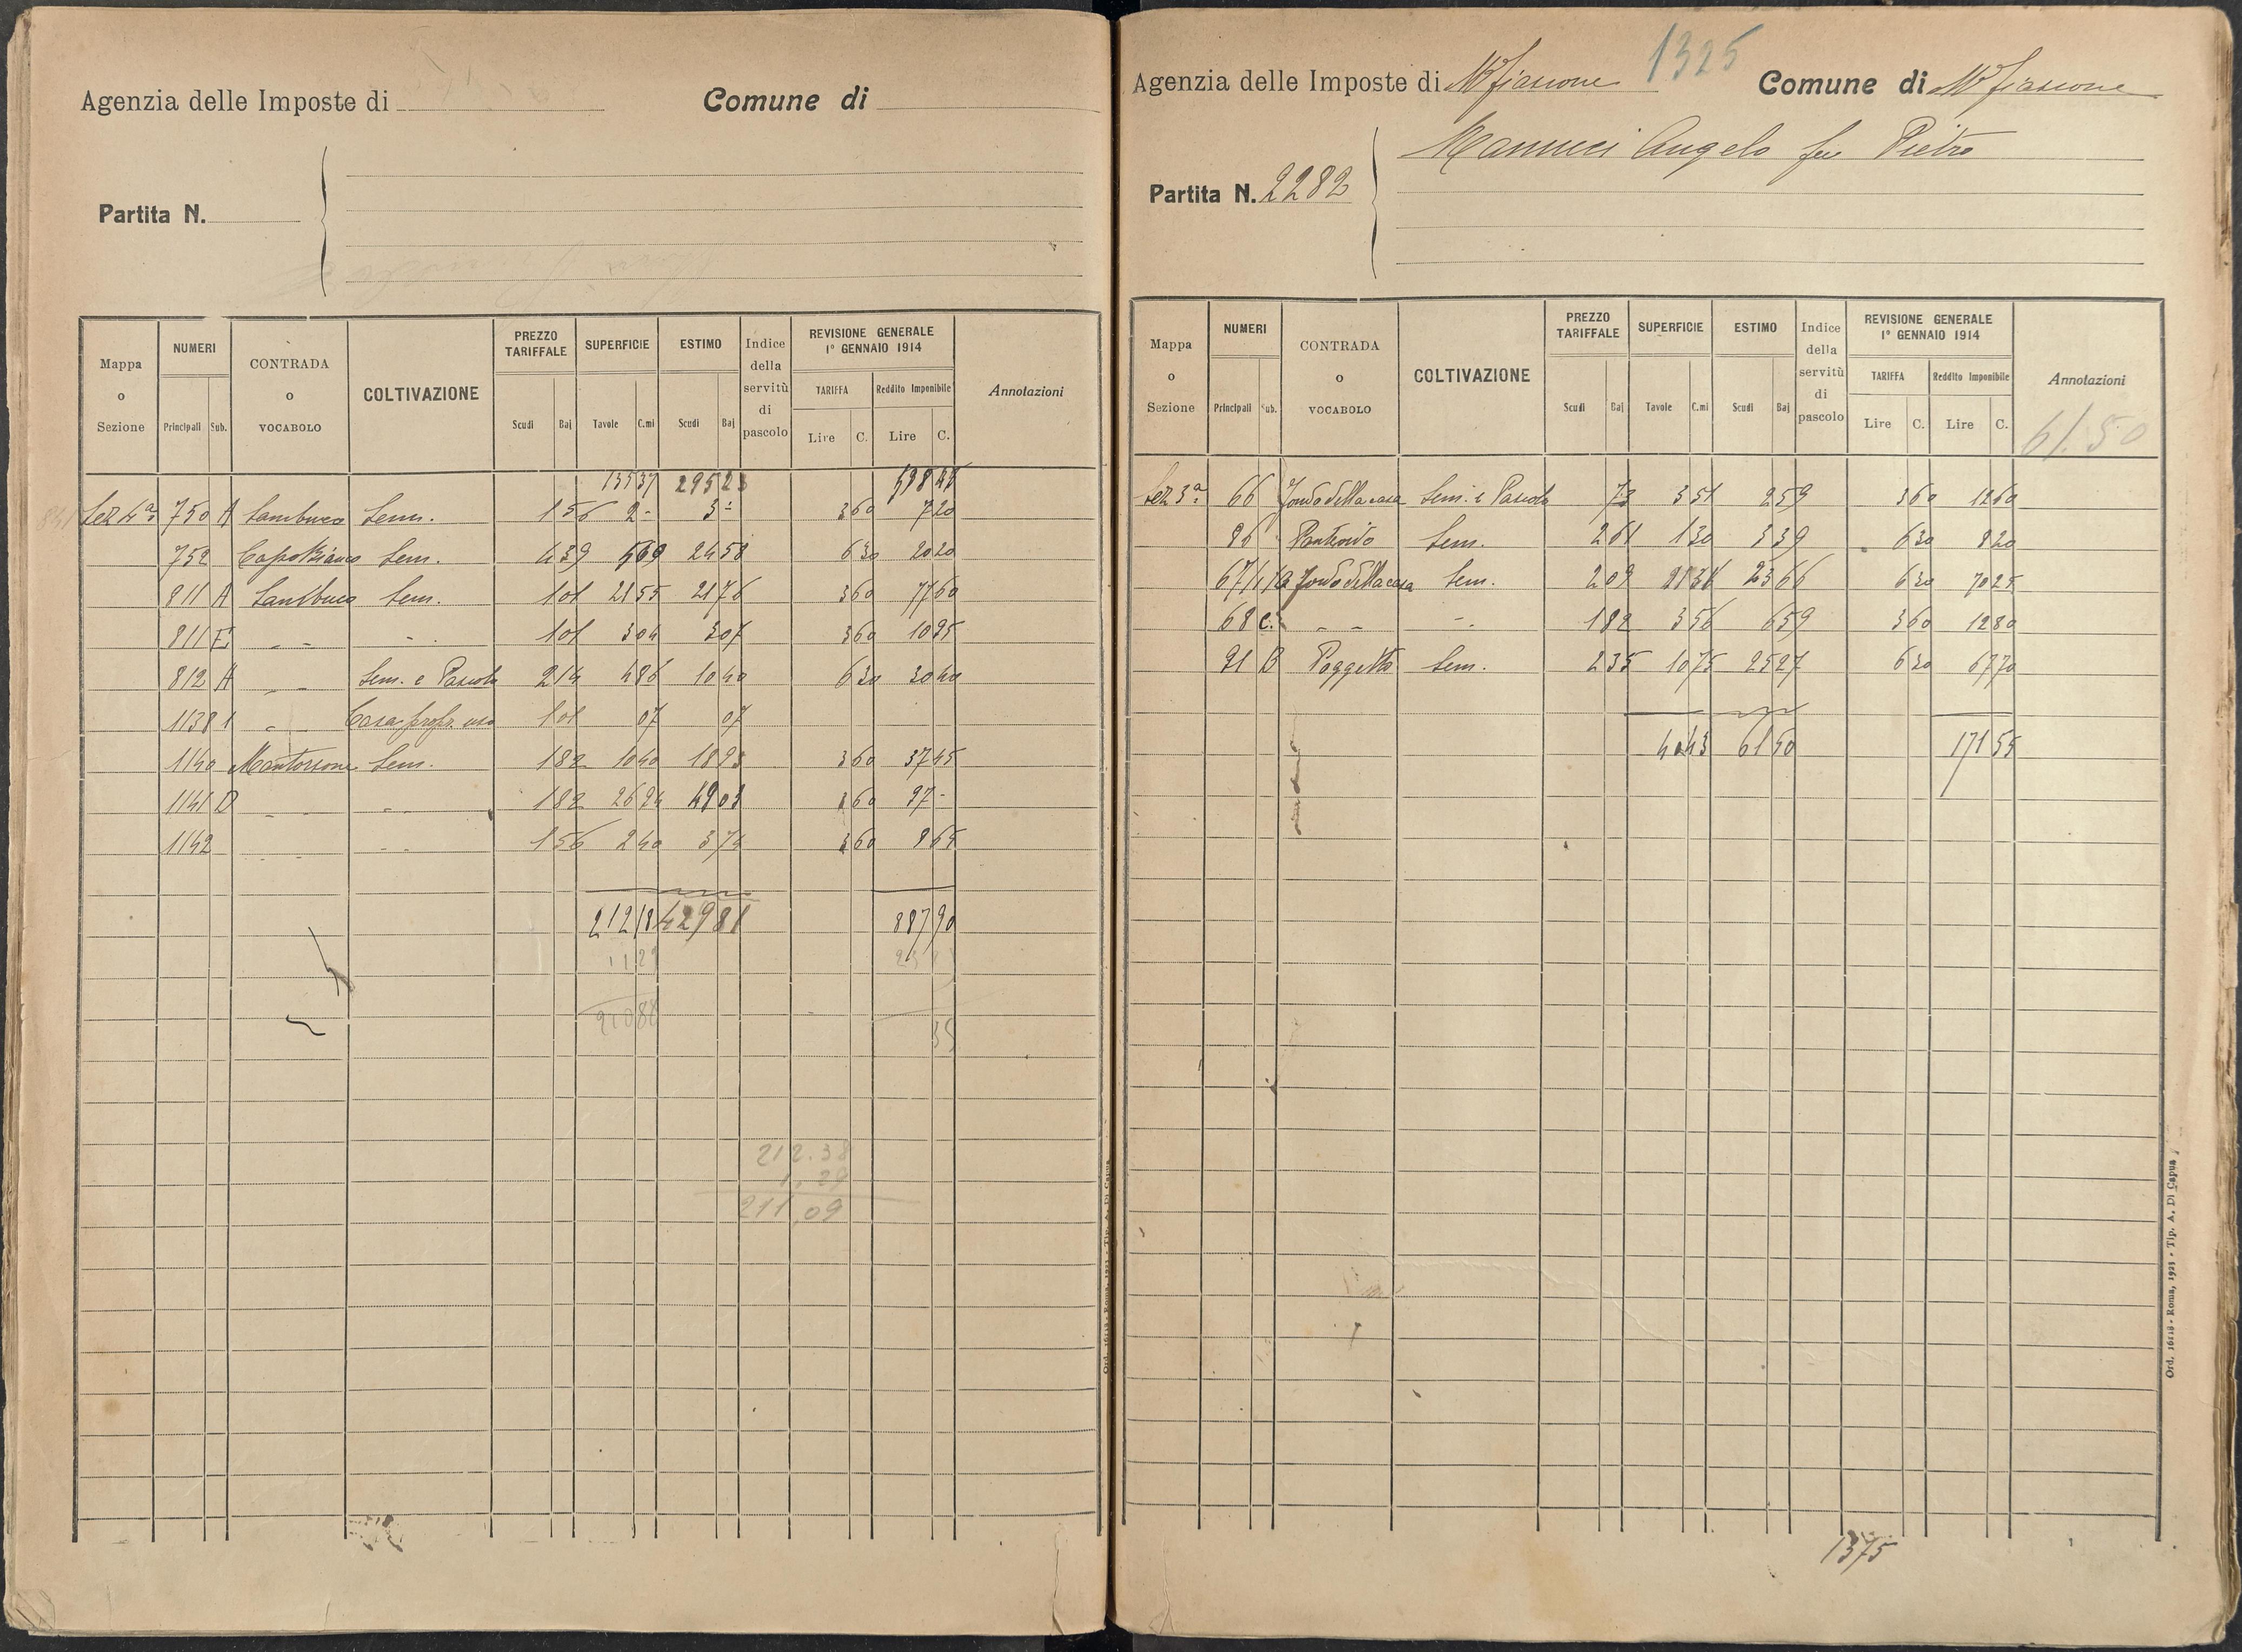 Agenzia delle Imposte di
Comune di
Partita N.
Mappa o Sezione
NUMERI
Principali
Sub.
CONTRADA o VOCABOLO
COLTIVAZIONE
PREZZO TARIFFALE
Scudi
Baj
SUPERFICIE
Tavole
C.mi
ESTIMO
Scudi
Baj
Indice della servitù di pascolo
REVISIONE GENERALE 1° GENNAIO 1914
TARIFFA
Lire
C.
Reddito Imponibile
Lire
C.
Annotazioni
135 37 295 23
Sez 4ª 750 A Sambuco Sem. 1 56 2 - 3 - 3 60 7 20
752 Capo Bianco Sem. 4 39 5 69 24 58 6 30 20 20
811 A Sambuco Sem. 1 01 21 55 21 76 3 60 77 60
811 E - - - - 1 01 3 04 3 07 3 60 10 95
812 A - - Sem. e Pascolo 2 14 4 86 10 40 6 30 30 40
1138 1 - - Casa propr. uso 1 01 07 07
1140 Montorsone Sem. 1 82 10 40 18 93 3 60 37 45
1141 D - - - - 1 82 26 94 49 03 3 60 97 -
1142 - - - - 1 56 2 40 3 74 3 60 8 65
212 18 429 81 887 90
1 29
210 88
212.38
1.29
211.09
Ord. 16118 - Roma, 1921 - Tip. A. Di Capua
1325
Agenzia delle Imposte di M.Fiascone Comune di M.Fiascone
Partita N. 2282
Mannucci Angelo fu Pietro
Mappa o Sezione
NUMERI
Principali
Sub.
CONTRADA o VOCABOLO
COLTIVAZIONE
PREZZO TARIFFALE
Scudi
Baj
SUPERFICIE
Tavole
C.mi
ESTIMO
Scudi
Baj
Indice della servitù di pascolo
REVISIONE GENERALE 1° GENNAIO 1914
TARIFFA
Lire
C.
Reddito Imponibile
Lire
C.
Annotazioni
61.50
Sez 3ª 66 Fondo della casa Sem. e Pascolo 73 3 51 2 59 3 60 12 60
86 Sem. 2 61 1 30 3 39 6 30 8 20
67/1 Fondo della casa Sem. 2 09 11 31 23 66 6 30 70 25
68 C. - - - - 1 82 3 56 6 59 3 60 12 80
91 B Poggetto Sem. 2 35 10 75 25 27 6 30 67 70
40 43 61 50 171 55
1375
Ord. 16118 - Roma, 1921 - Tip. A. Di Capua